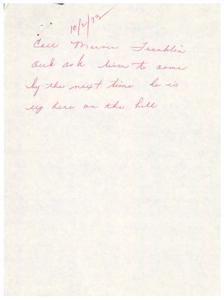 10/2/72
Call Marvin Franklin
and ask him to come
by the next time he is
up here on the hill